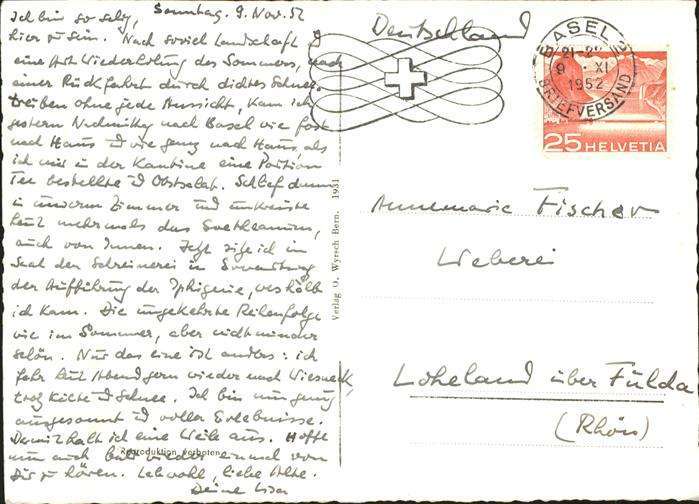 Sonntag. 9. Nov. 52
Ich bin so selig,
hier zu sein. Nach soviel Landschaft &
eine Art Wiederholung des Sommers, nach
einer Rückfahrt durch dichtes Schnee-
treiben ohne jede Aussicht, kam ich
gestern Nachmittag nach Basel wie fast
nach Haus & wie ganz nach Haus, als
ich mir in der Kantine eine Portion
Tee bestellte & Obstsalat. Schlief dann
in unserem Zimmer und umkreiste
heut mehrmals das Goetheanum,
auch von Innen. Jetzt sitze ich im
Saal der Schreinerei in Erwartung
der Aufführung der Iphigenie, weshalb
ich kam. Die umgekehrte Reihenfolge
wie im Sommer, aber nicht minder
schön. Nur das eine ist anders: ich
fahr heut Abend gern wieder nach Wiesneck,
trotz Kälte & Schnee. Ich bin nun ganz
ausgesonnt & voller Erlebnisse.
Damit halt ich eine Weile aus. Hoffe
nun auch bald wieder einmal von
Dir zu hören. Lebwohl, liebe Alte.
Deine
Reproduktion verboten
Verlag O. Wyrsch Bern. 1931
Deutschland
BASEL 2
21-2
9. XI
1952
BRIEFVERSAND
25 HELVETIA
Annemarie Fischer
Weberei
Loheland über Fulda
(Rhön)